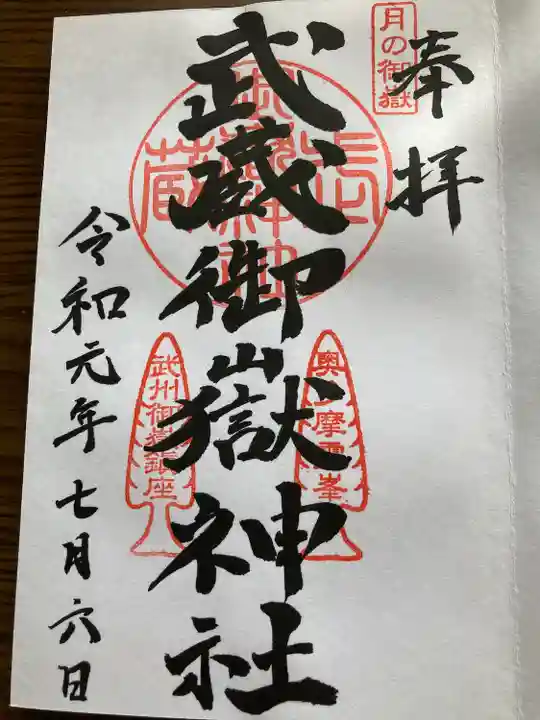 奉拝
月の御嶽
武蔵御嶽神社
奥多摩霊峯
武州御嶽鎮座
令和元年七月六日